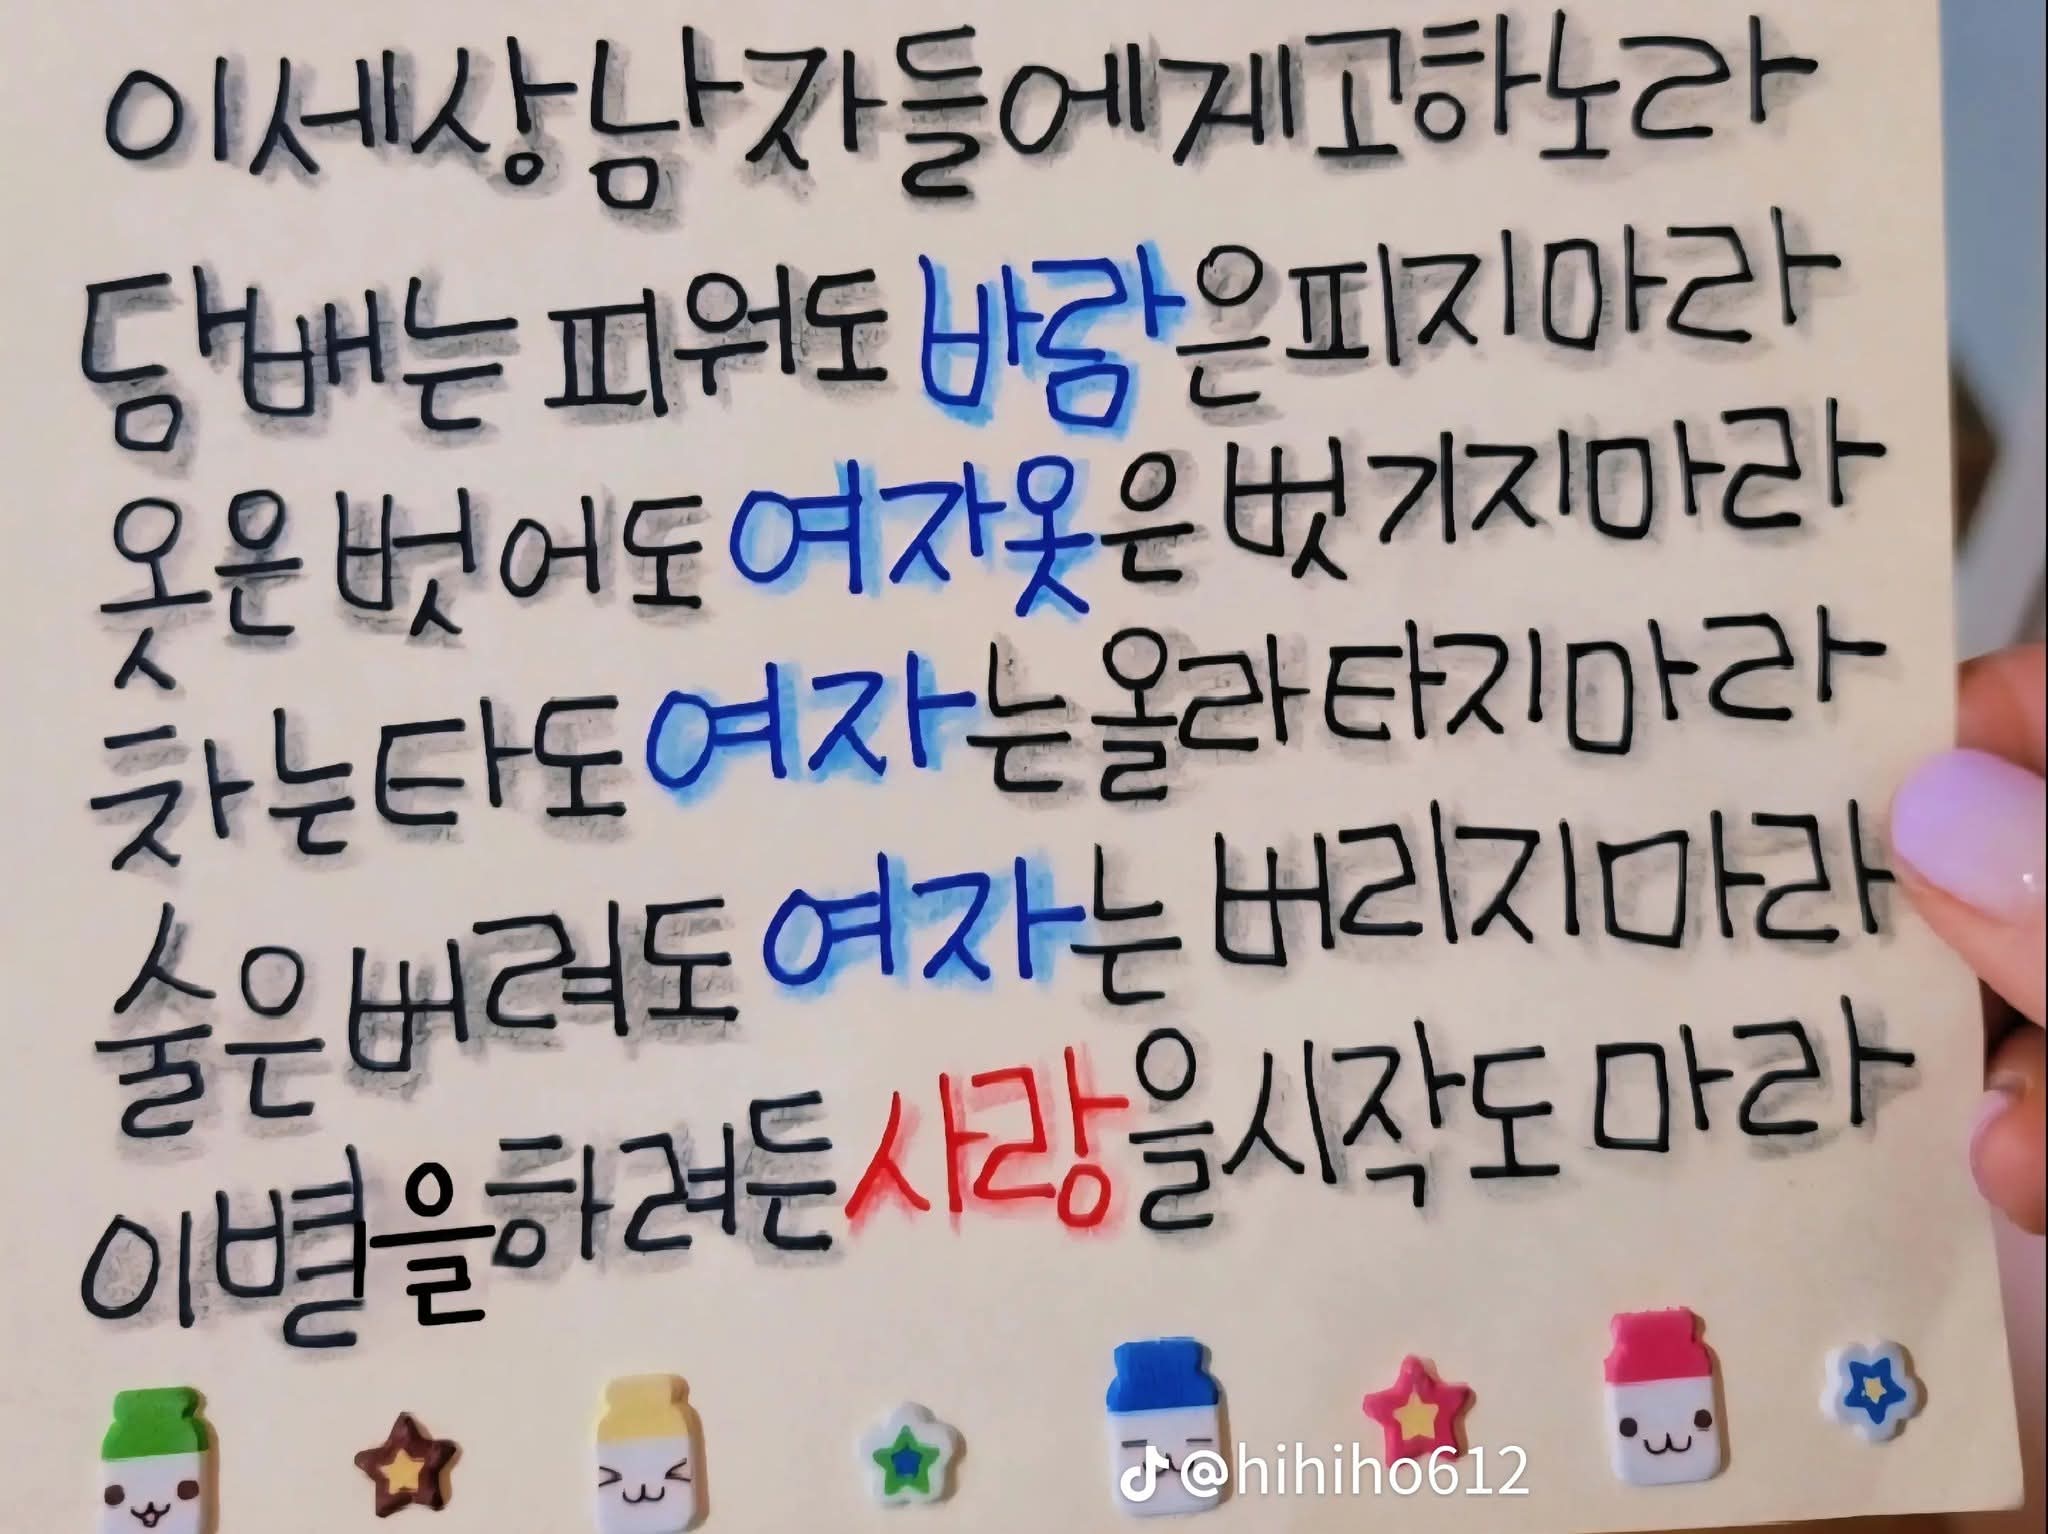 이세상 남자들에게고하노라
담배는 피워도 바람은피지마라
옷은 벗어도 여자옷은 벗기지마라
차는타도 여자는올라타지마라
술은버려도 여자는 버리지마라
이별을하려든사랑을시작도 마라
@hihiho612